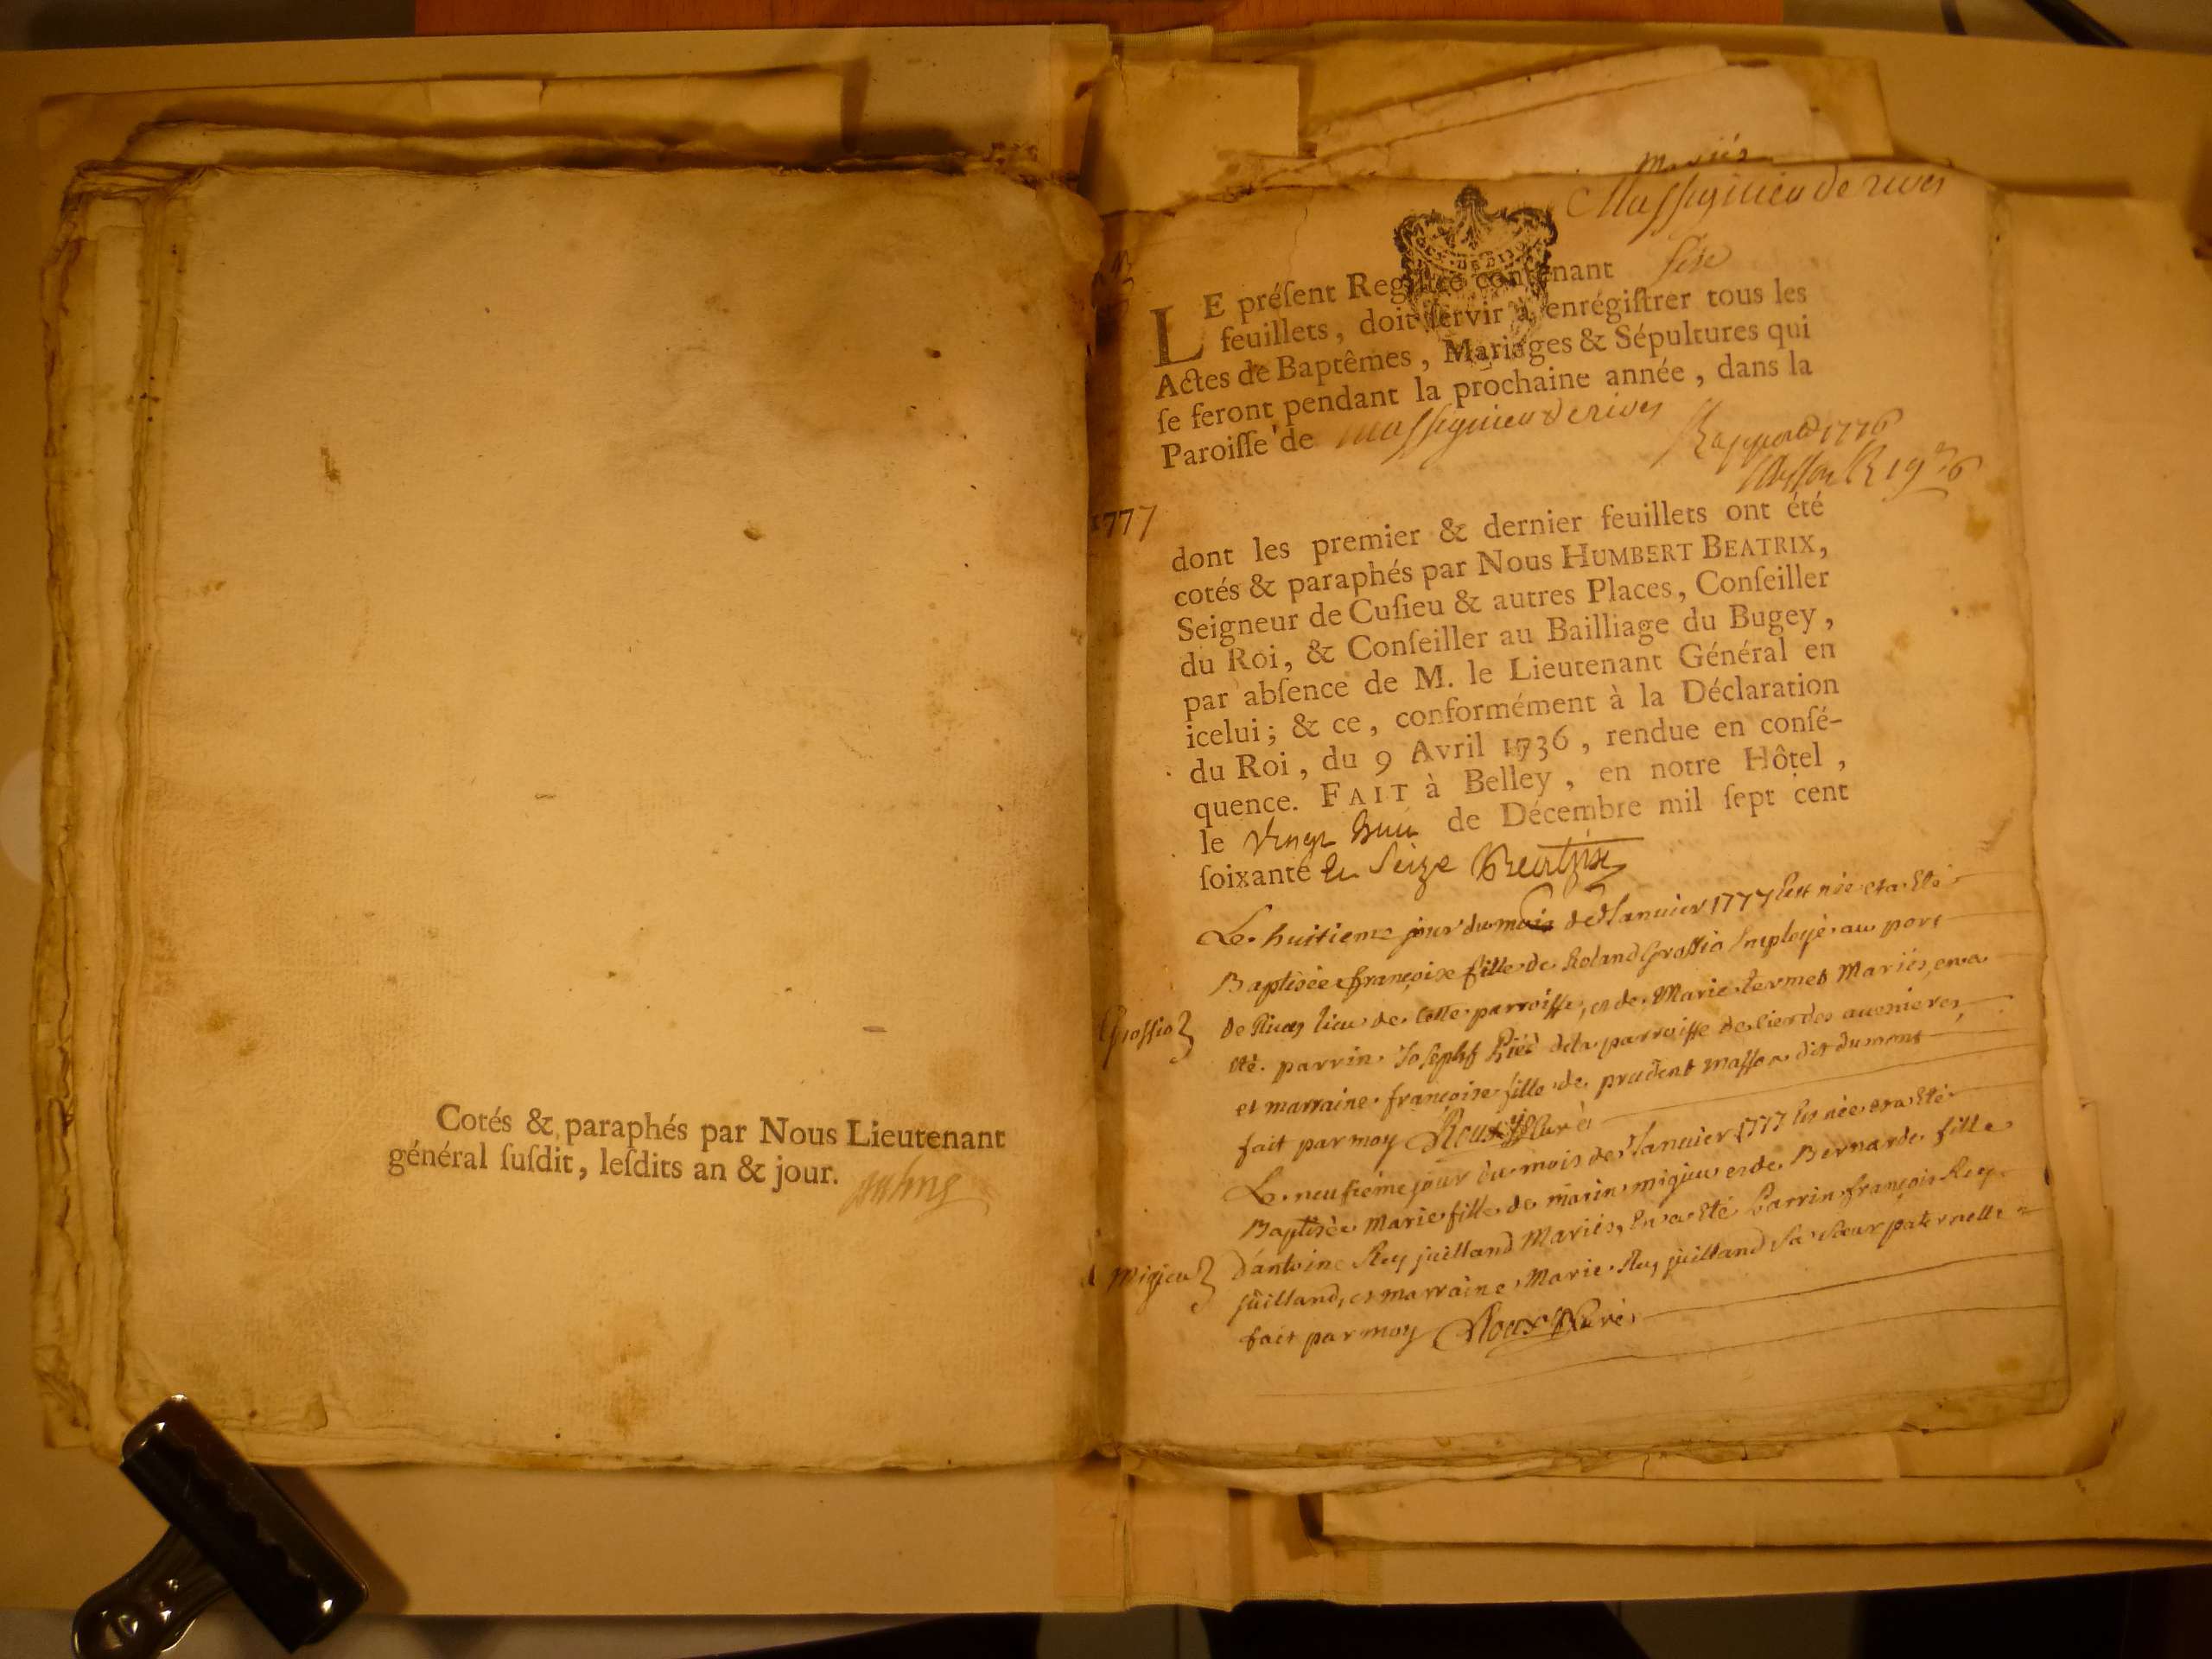 Cotés & paraphés par Nous Lieutenant
général ſuſdit, leſdits an & jour.
Massignieu de rives
LE préſent Regiſtre contenant
feuillets, doit ſervir à enrégiſtrer tous les
Actes de Baptêmes, Mariages & Sépultures qui
ſe feront pendant la prochaine année, dans la
Paroiſſe de Massignieu de rives
Rapporté 1776
1777
dont les premier & dernier feuillets ont été
cotés & paraphés par Nous HUMBERT BEATRIX,
Seigneur de Cuſieu & autres Places, Conſeiller
du Roi, & Conſeiller au Bailliage du Bugey,
par abſence de M. le Lieutenant Général en
icelui; & ce, conformément à la Déclaration
du Roi, du 9 Avril 1736, rendue en conſé-
quence. FAIT à Belley, en notre Hôtel,
le vingt huit de Décembre mil ſept cent
ſoixante et seize Beatrix
Le huitieme jour du mois de Janvier 1777 Est née et a Eté
Baptisée françoise fille de Roland Grossio Employé au port
Grossio
De Rives lieu de Cette parroisse, et de Marie termet Mariés, en a
été parrin Joseph Riéd de la parroisse de avenieres,
et marraine françoise fille de prudent masson dit dumont
fait par moy Roux Curé
Le neufieme jour du mois de Janvier 1777 Est née et a Eté
Baptisée Marie fille de marin migieu et de Bernarde fille
Migieu
d'antoine Rey juilland Mariés, En a Eté Parrin françois Rey
juilland, et marraine Marie Rey juilland sa sœur paternelle
fait par moy Roux Curé